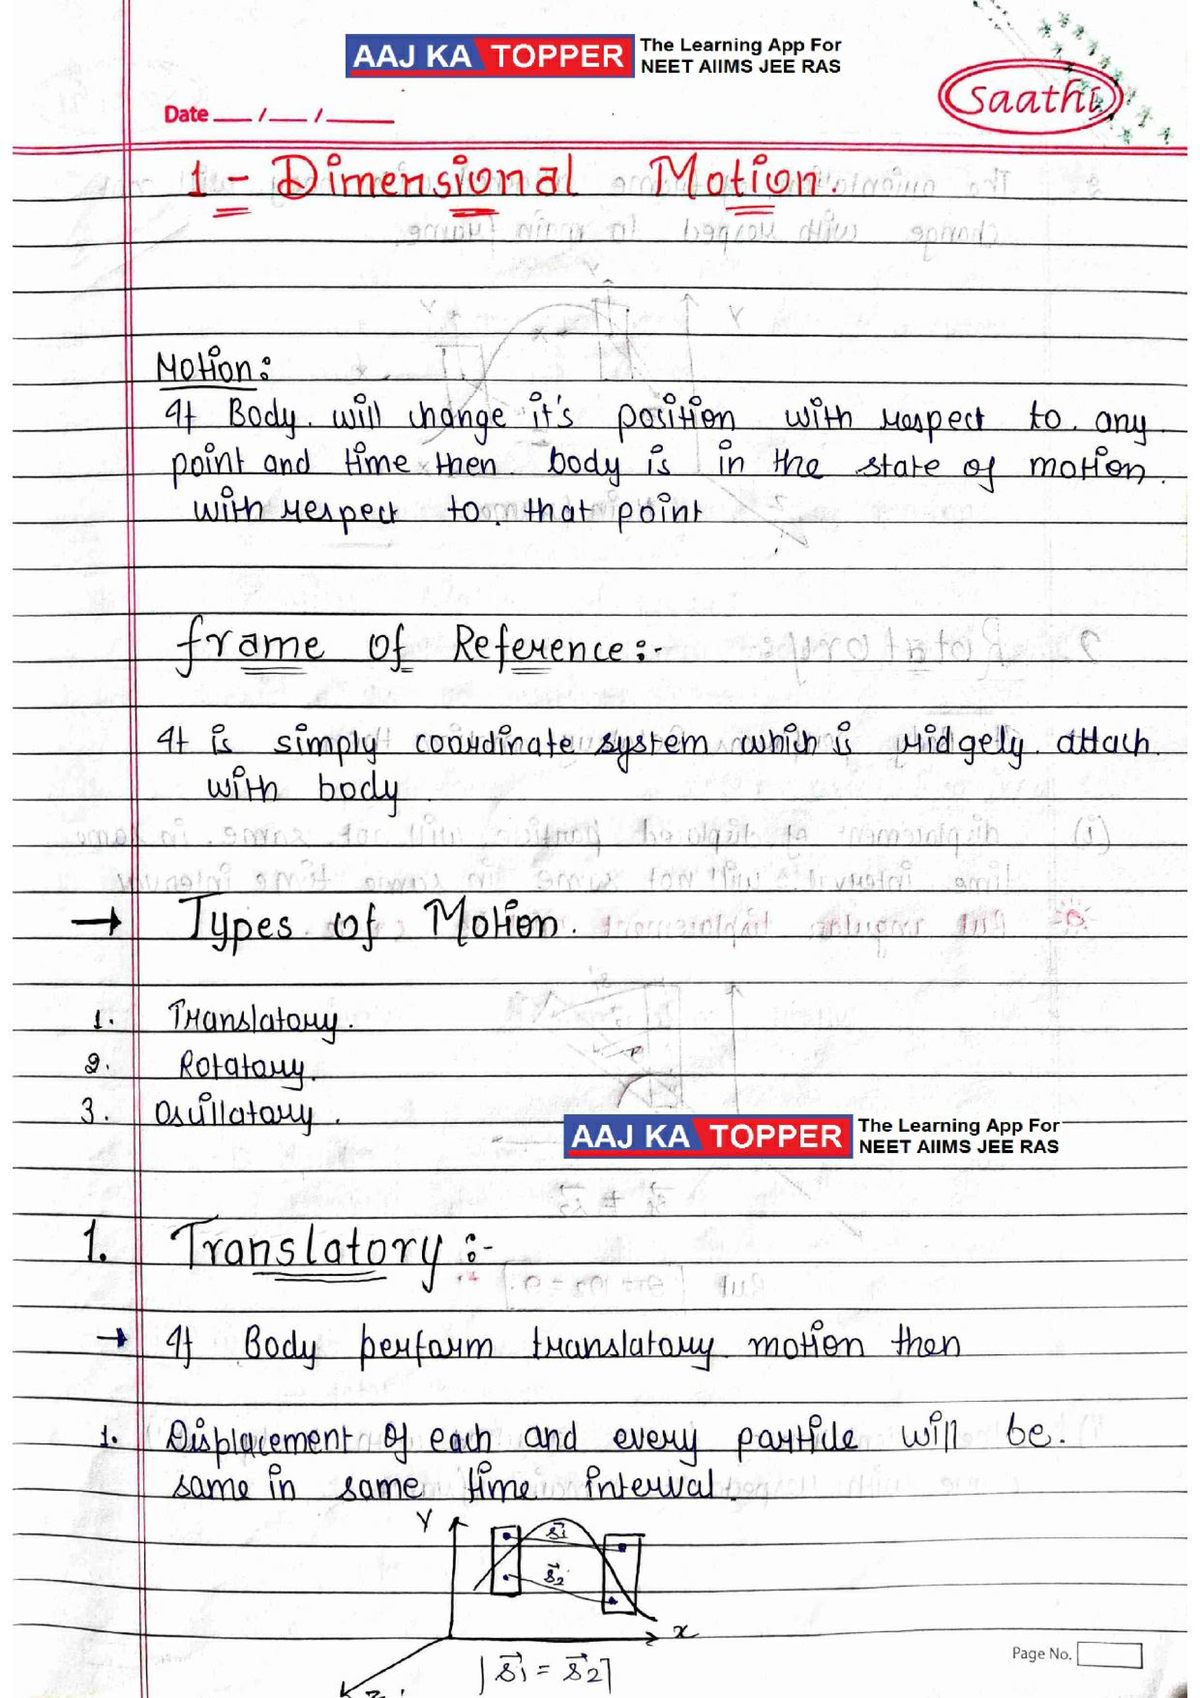 AAJ KA TOPPER The Learning App For
NEET AIIMS JEE RAS
Saathi
Date ___ / ___ / _____
1 - Dimensional Motion.
Motion:
If Body will change it's position with respect to any
point and time then body is in the state of motion
with respect to that point
Frame of Reference:-
It is simply coordinate system which is ridgely attach
with body
→ Types of Motion.
1. Translatory.
2. Rotatory.
3. Oscillatory.
AAJ KA TOPPER The Learning App For
NEET AIIMS JEE RAS
1. Translatory:-
→ If Body perform translatory motion then
1. Displacement of each and every particle will be.
same in same time interval.
Y
s⃗1
s⃗2
x
s⃗1 = s⃗2
Page No.